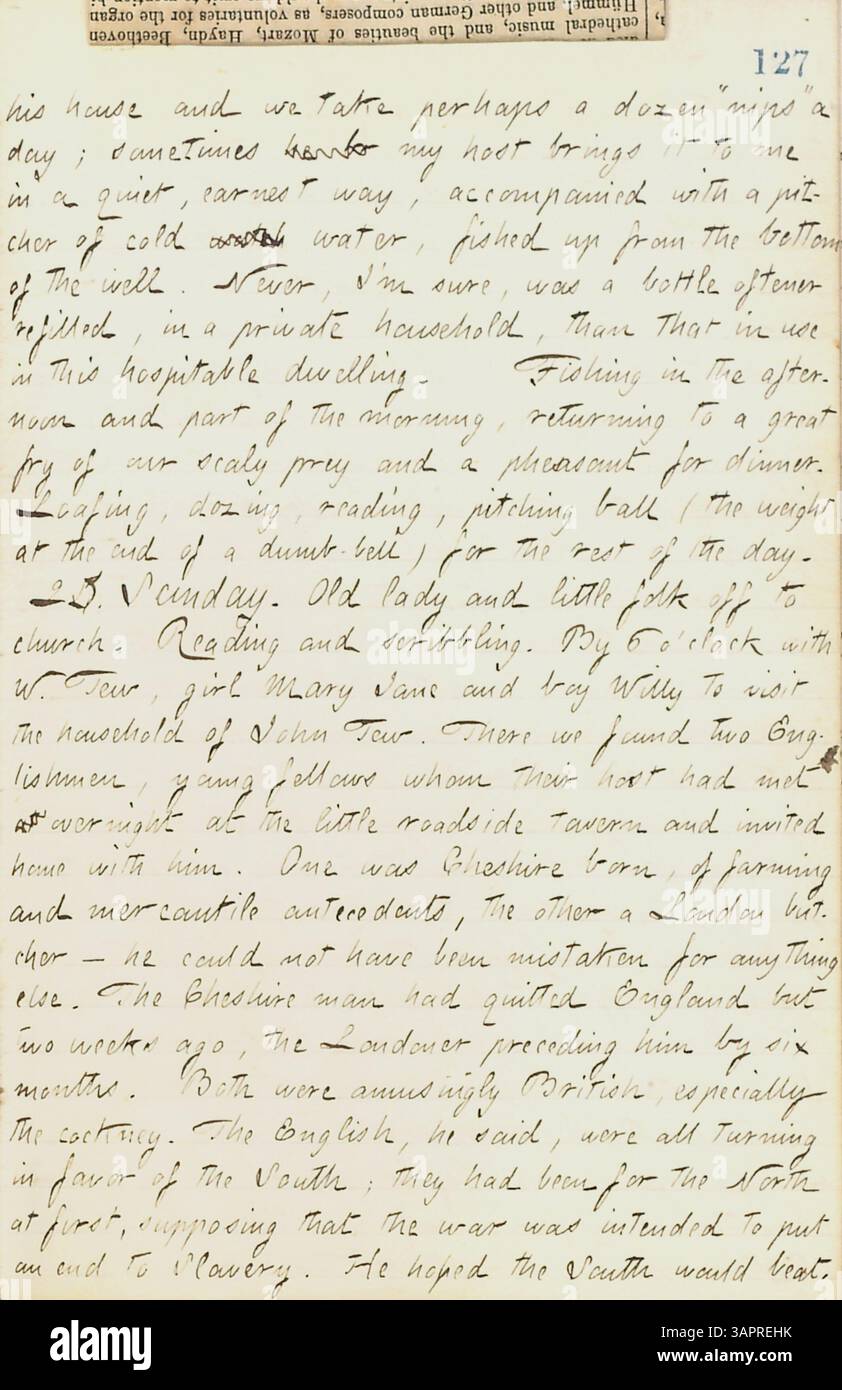 cathedral music, and the beauties of Mozart, Haydn, Beethoven
Hummel, and other German composers, as voluntaries for the organ
127
his house and we take perhaps a dozen "nips" a
day ; sometimes my host brings it to me
in a quiet, earnest way, accompanied with a pit-
cher of cold water, fished up from the bottom
of the well. Never, I'm sure, was a bottle oftener
refilled, in a private household, than that in use
in this hospitable dwelling. Fishing in the after-
noon and part of the morning, returning to a great
fry of our scaly prey and a pheasant for dinner.
Loafing, dozing, reading, pitching ball (the weight
at the end of a dumb-bell) for the rest of the day.
Sunday. Old lady and little folk off to
church. Reading and scribbling. By 6 o'clock with
W. Tew, girl Mary Jane and boy Willy to visit
the household of John Tew. There we found two Eng-
lishmen, young fellows whom their host had met
overnight at the little roadside tavern and invited
home with him. One was Cheshire born, of farming
and mercantile antecedents, the other a London but-
cher — he could not have been mistaken for anything
else. The Cheshire man had quitted England but
two weeks ago, the Londoner preceding him by six
months. Both were amusingly British, especially
the cockney. The English, he said, were all turning
in favor of the South ; they had been for the North
at first, supposing that the war was intended to put
an end to Slavery. He hoped the South would beat.
alamy
Image ID: 3APREHK
www.alamy.com